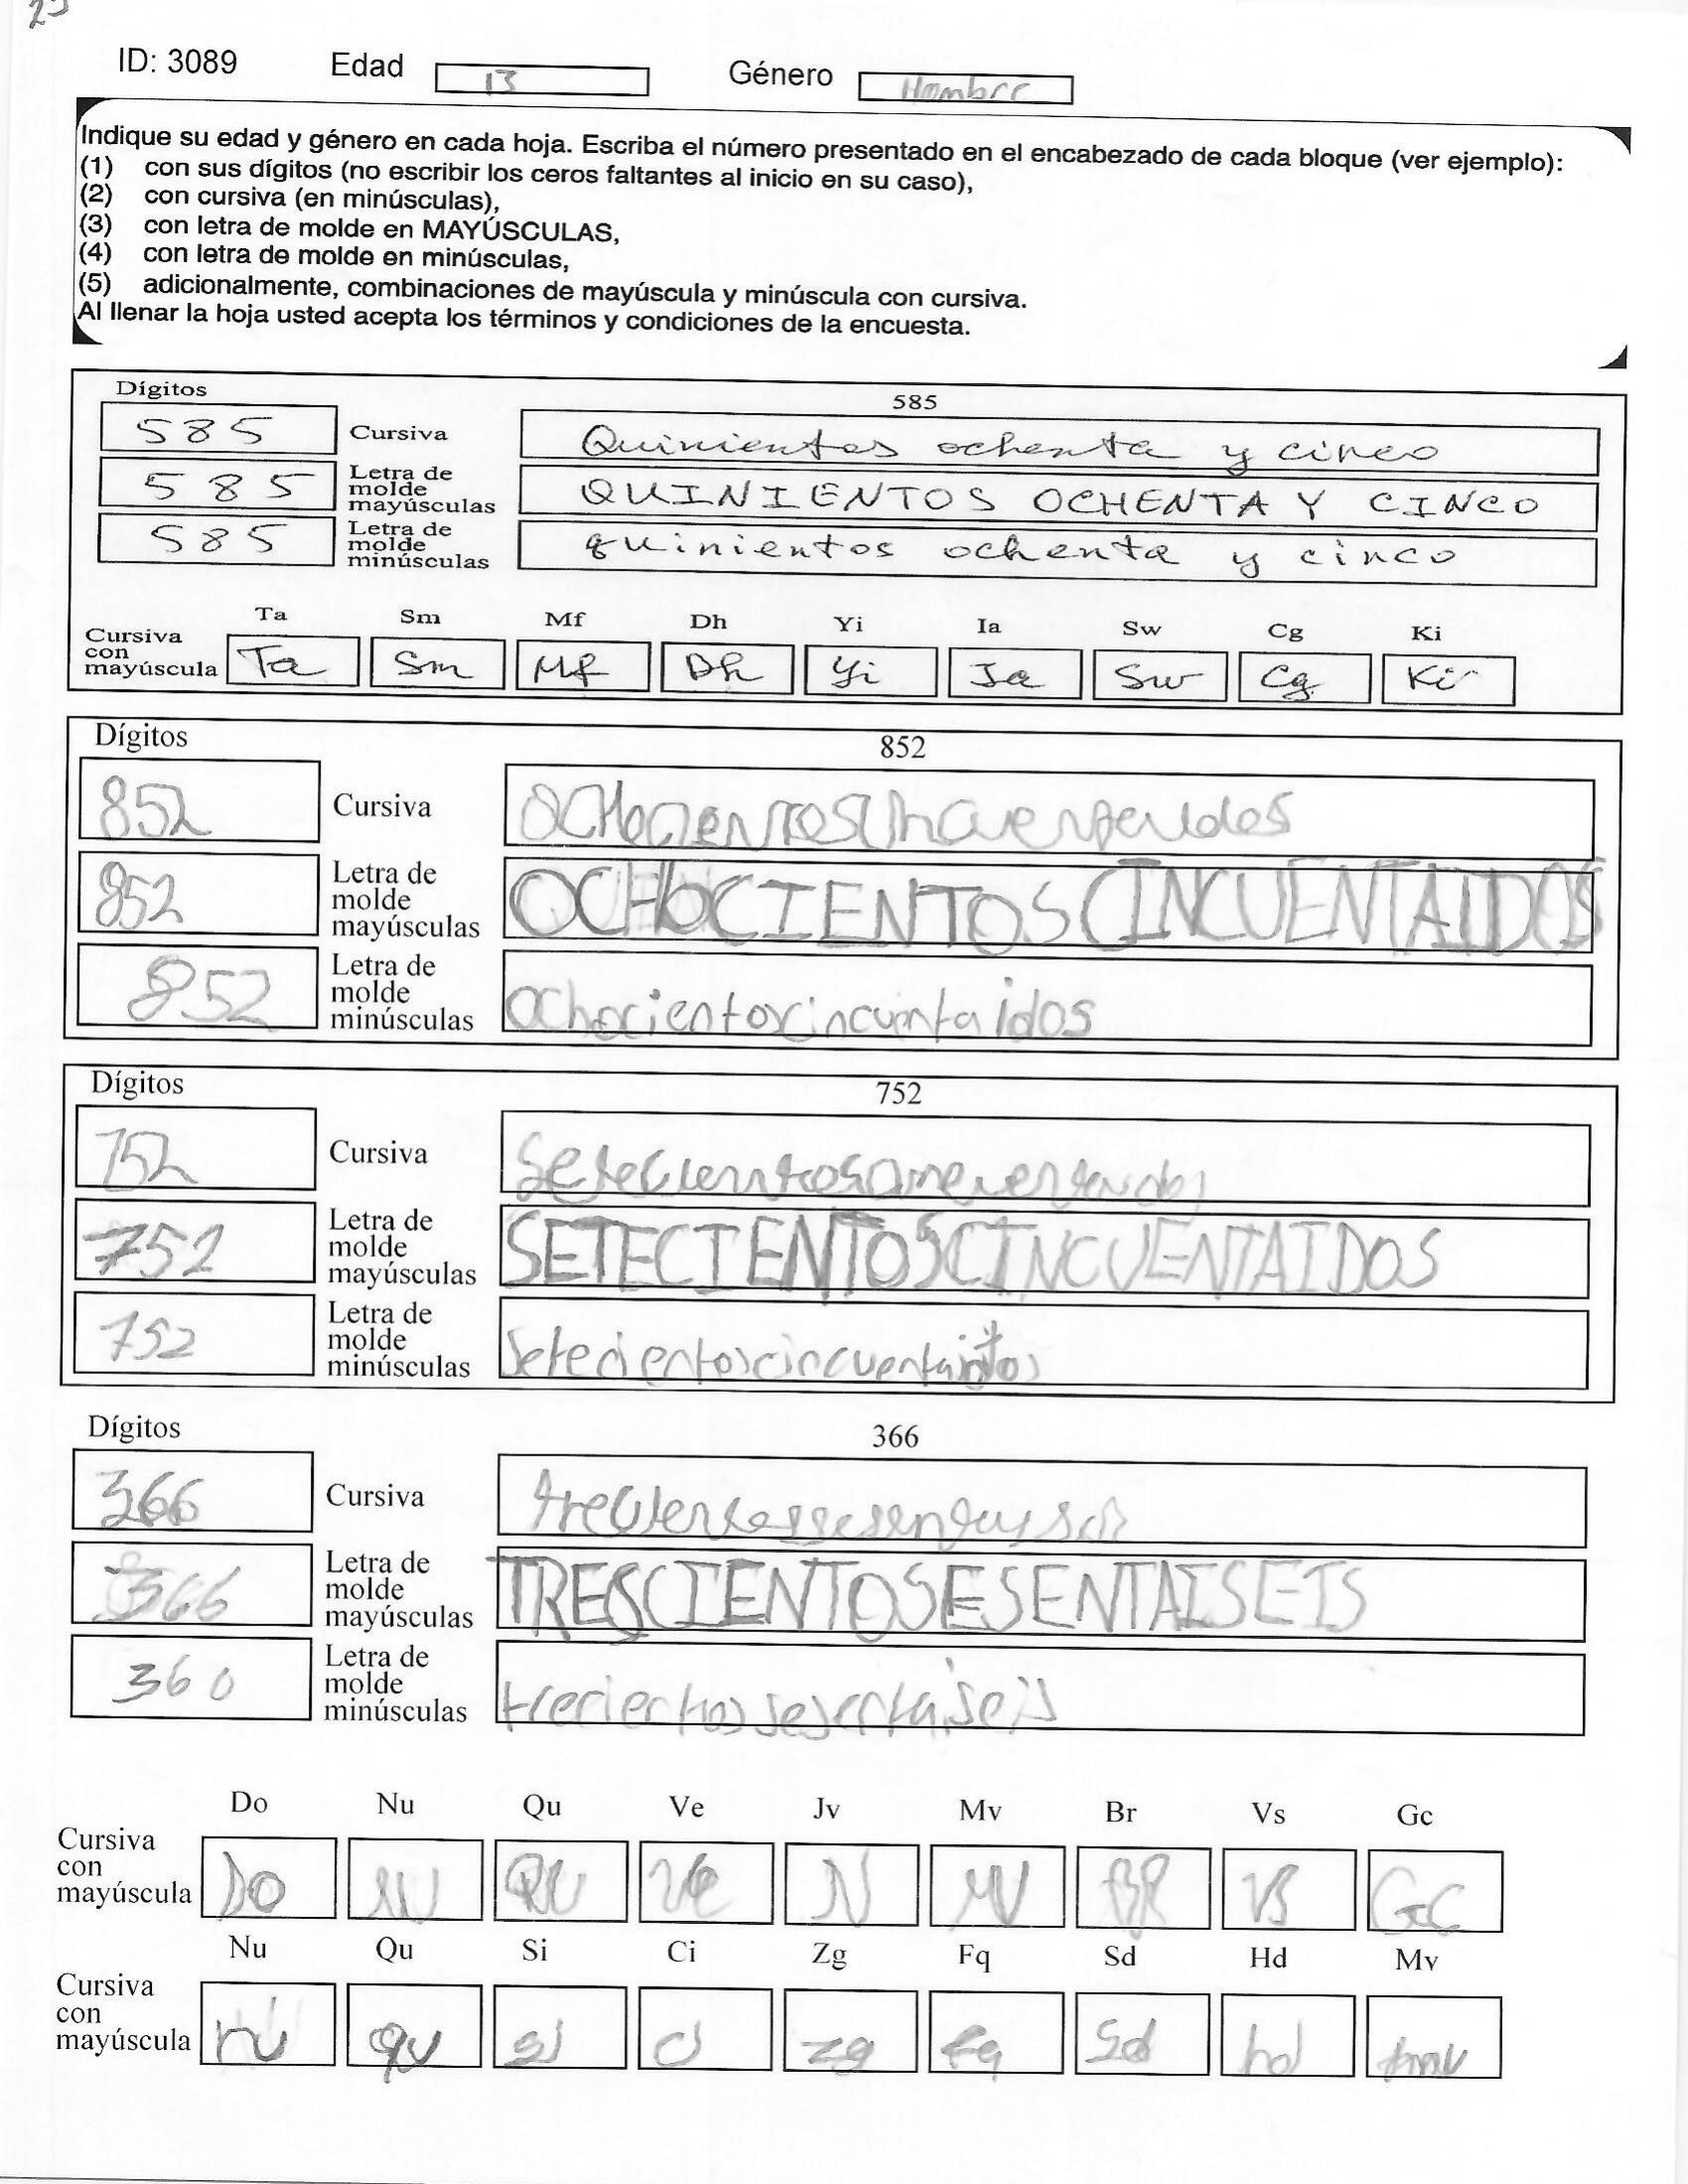 25
ID: 3089 Edad 13 Género Hombre
Indique su edad y género en cada hoja. Escriba el número presentado en el encabezado de cada bloque (ver ejemplo):
(1) con sus dígitos (no escribir los ceros faltantes al inicio en su caso),
(2) con cursiva (en minúsculas),
(3) con letra de molde en MAYÚSCULAS,
(4) con letra de molde en minúsculas,
(5) adicionalmente, combinaciones de mayúscula y minúscula con cursiva.
Al llenar la hoja usted acepta los términos y condiciones de la encuesta.
Dígitos 585
585 Cursiva Quinientos ochenta y cinco
585 Letra de molde mayúsculas QUINIENTOS OCHENTA Y CINCO
585 Letra de molde minúsculas quinientos ochenta y cinco
Ta Sm Mf Dh Yi Ia Sw Cg Ki
Cursiva con mayúscula Ta Sm Mf Dh Yi Ia Sw Cg Ki
Dígitos 852
852 Cursiva
852 Letra de molde mayúsculas OCHOCIENTOSCINCUENTAIDOS
852 Letra de molde minúsculas ochocientoscincuntaidos
Dígitos 752
752 Cursiva
752 Letra de molde mayúsculas SETECIENTOSCINCUENTAIDOS
752 Letra de molde minúsculas setecientoscincuentaidos
Dígitos 366
366 Cursiva
366 Letra de molde mayúsculas TRESCIENTOSESENTAISEIS
360 Letra de molde minúsculas
Do Nu Qu Ve Jv Mv Br Vs Gc
Cursiva con mayúscula DO NU QU Ve MV BR VS GC
Nu Qu Si Ci Zg Fq Sd Hd Mv
Cursiva con mayúscula nu qu si ci zg fq Sd hd mv